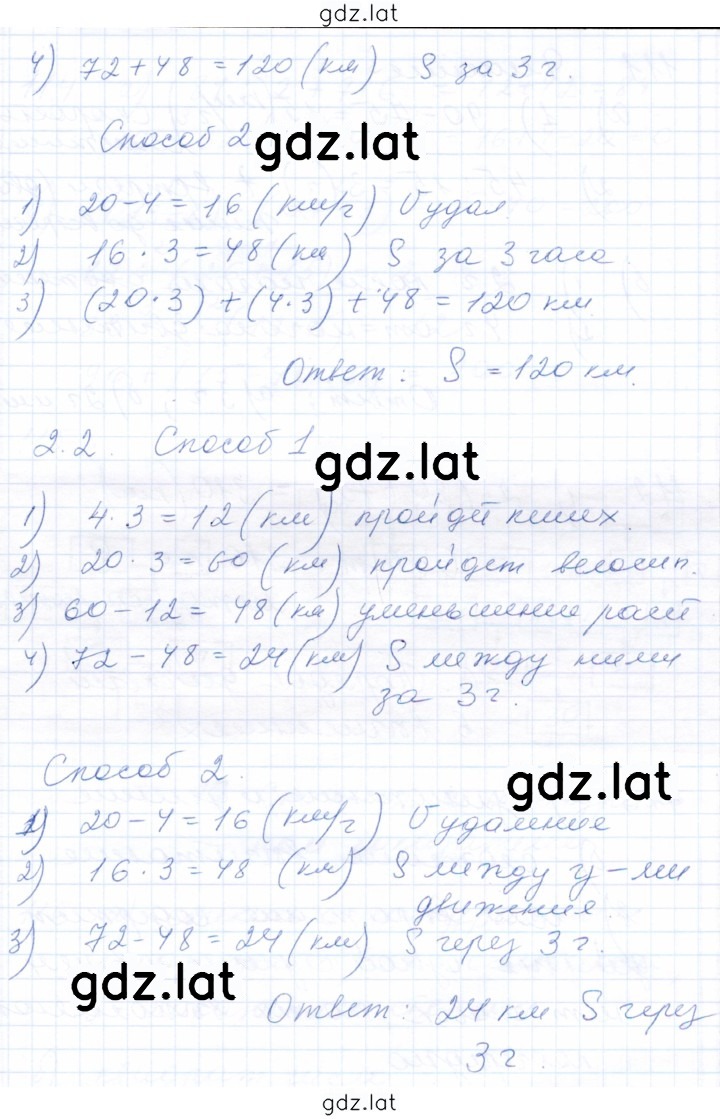 gdz.lat
4) 72 + 48 = 120 (км) S за 3 г.
Способ 2
gdz.lat
1) 20 - 4 = 16 (км/г) υ удал.
2) 16 · 3 = 48 (км) S за 3 часа.
3) (20 · 3) + (4 · 3) + 48 = 120 км.
Ответ: S = 120 км.
2.2. Способ 1
gdz.lat
1) 4 · 3 = 12 (км) пройдет пеших.
2) 20 · 3 = 60 (км) пройдет велосип.
3) 60 - 12 = 48 (км) уменьшение расст
4) 72 - 48 = 24 (км) S между ними
за 3 г.
Способ 2.
gdz.lat
1) 20 - 4 = 16 (км/г) υ удаление
2) 16 · 3 = 48 (км) S между у-ми
движения.
3) 72 - 48 = 24 (км) S через 3 г.
gdz.lat
Ответ: 24 км S через
3 г.
gdz.lat